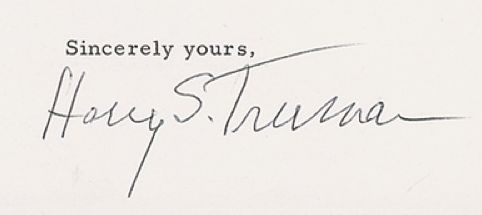 Sincerely yours,
Harry S. Truman